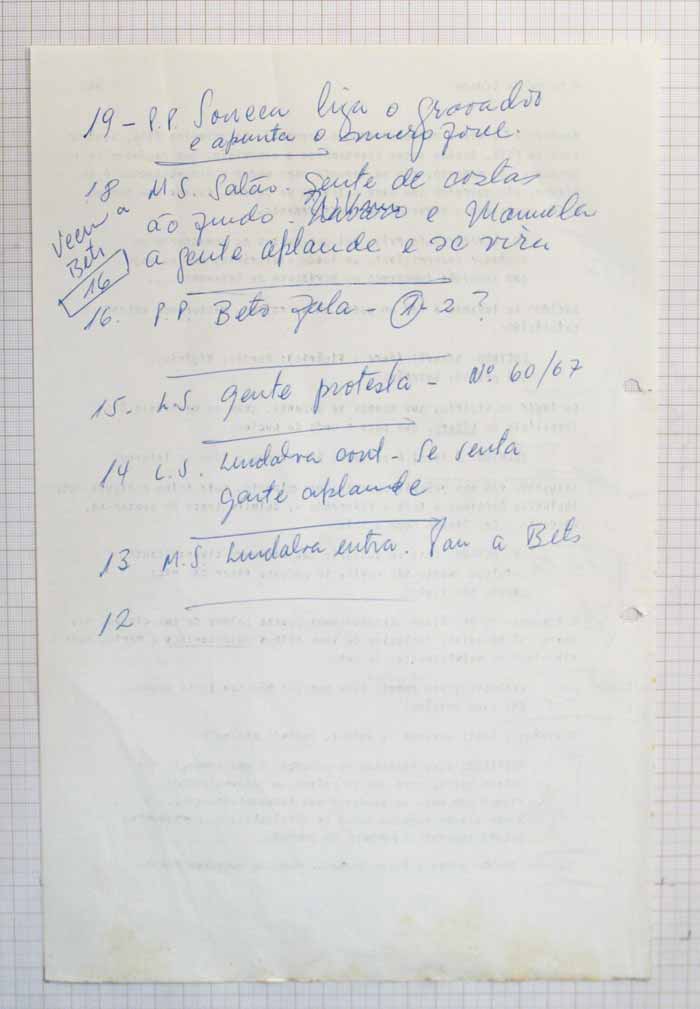 19 - P.P. Soneca liga o gravador
e apunta o microfone.
18 M.S. Salão. Gente de costas
Vem a
Beto
16
ão fundo. e Manuela
a gente aplaude e se vira
16. P.P. Beto fala - 2?
15 - L.S. Gente protesta - Nº 60/67
14 L.S. Lindalva cont. Se senta
gente aplaude.
13 M.S. Lindalva entra. Pan a Beto
12